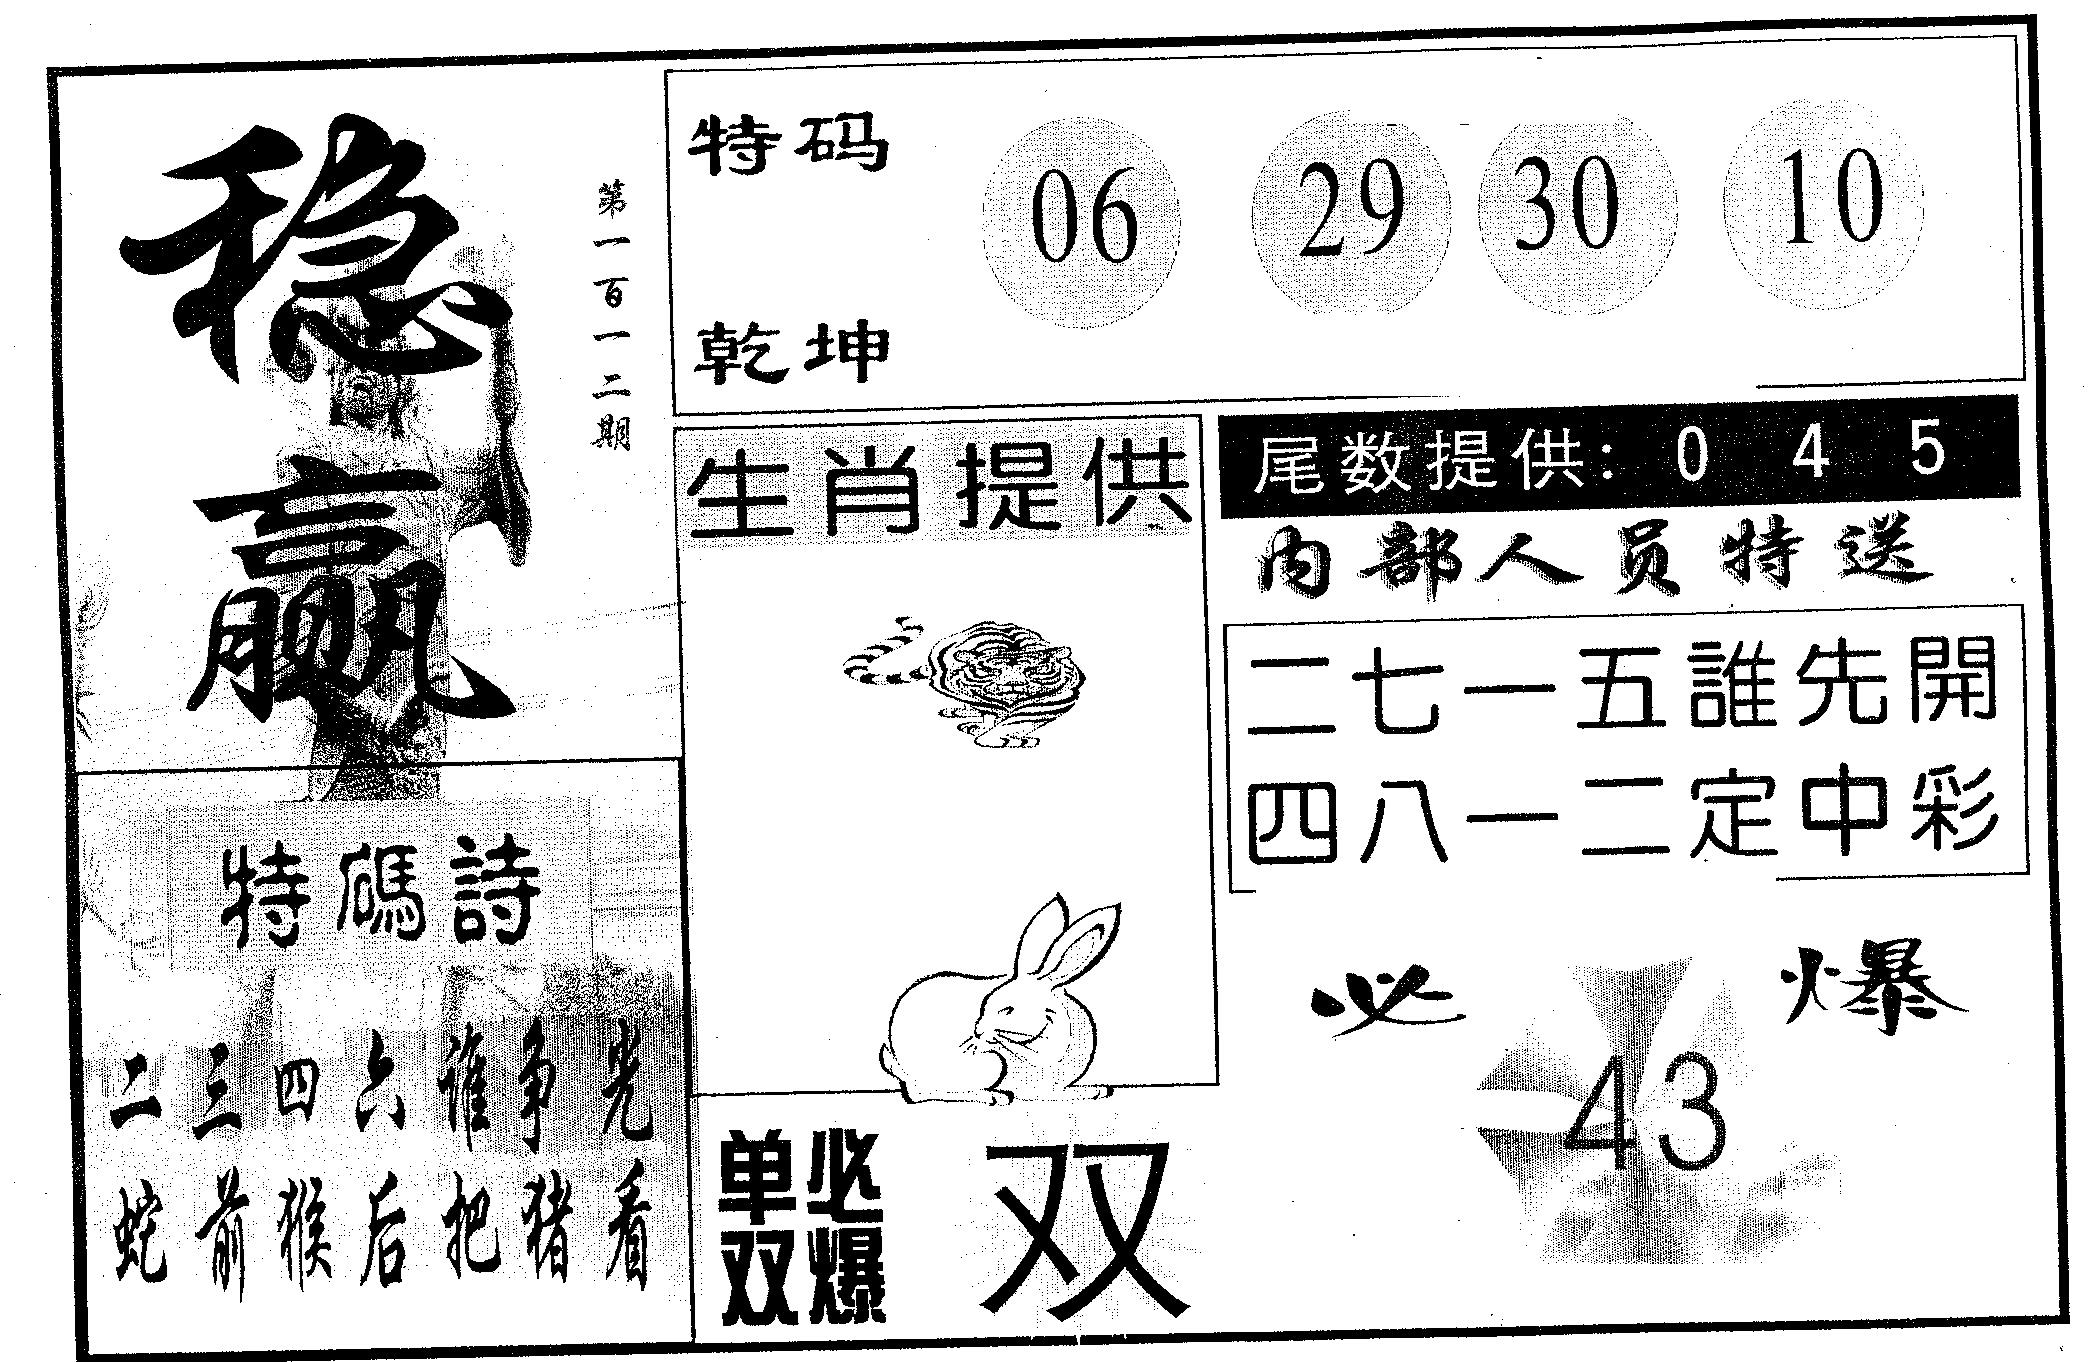 稳赢
第一百一二期
特码
乾坤
06 29 30 10
生肖提供
尾数提供：0 4 5
内部人员特送
二七一五誰先開
四八一二定中彩
特碼詩
二三四六谁争先
蛇前猴后把猪看
必爆
43
单双必爆
双